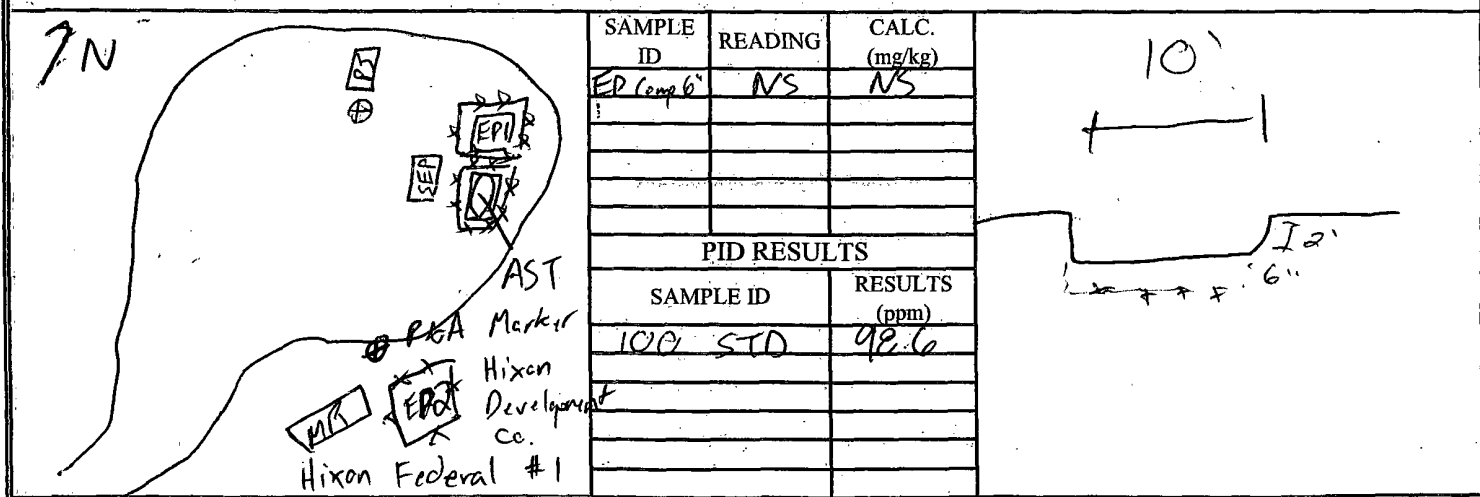 N
PJ
EP1
SEP
AST
P&A Marker
Hixon
EP2 Development
MR Co.
Hixon Federal #1
SAMPLE ID READING CALC. (mg/kg)
EP Comp 6" NS NS
PID RESULTS
SAMPLE ID RESULTS (ppm)
100 STD 98.6
10'
2'
6"